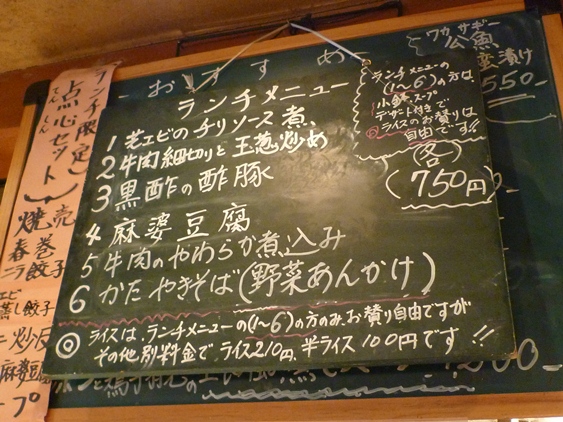 おすすめ
ランチメニュー
1 芝エビのチリソース煮
2 牛肉細切りと玉葱炒め
3 黒酢の酢豚
4 麻婆豆腐
5 牛肉のやわらか煮込み
6 かたやきそば(野菜あんかけ)
◎ ライスは、ランチメニューの(1〜6)の方のみ、お賛り自由ですが
その他別料金で、ライス210円、半ライス100円です!!
ランチメニューの
(1〜6)の方は、
小鉢、スープ
デザート付きで
◎ライスのお賛りは
自由です!!
(各)
(750円)
ワカサギー
公魚
漬け
550-
ランチ限定
点心セット
てん しん
焼売
春巻
ニラ餃子
エビ
蒸し餃子
麻婆豆腐